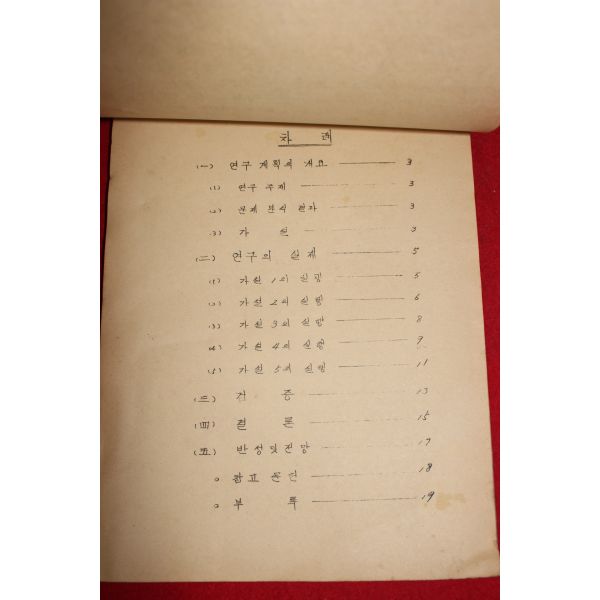 차 례
(一) 연구 계획의 개요 3
(1) 연구 주제 3
(2) 문제 분석 결과 3
(3) 가 설 3
(二) 연구의 실제 5
(1) 가설 1의 실행 5
(2) 가설 2의 실행 6
(3) 가설 3의 실행 8
(4) 가설 4의 실행 9
(5) 가설 5의 실행 11
(三) 검 증 13
(四) 결 론 15
(五) 반성 및 전망 17
o 참고 문헌 18
o 부 록 19